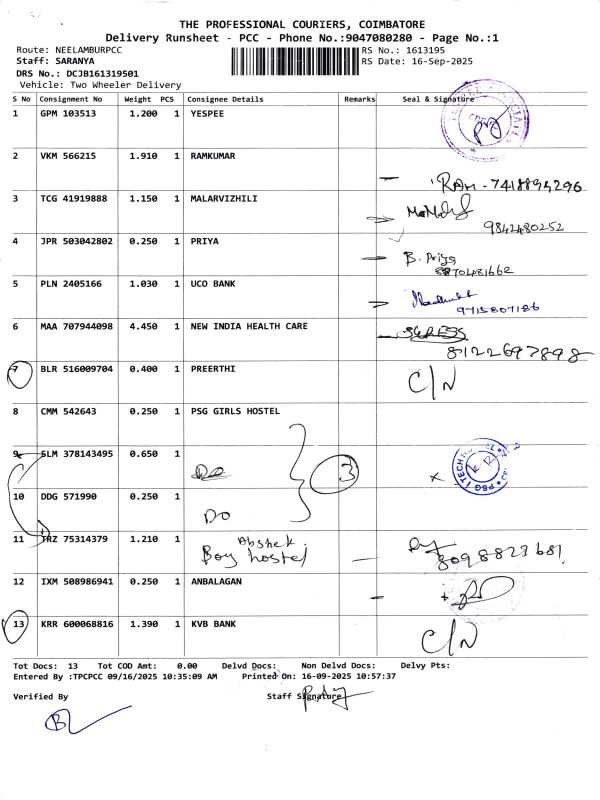 THE PROFESSIONAL COURIERS, COIMBATORE
Delivery Runsheet - PCC - Phone No.:9047080280 - Page No.:1
Route: NEELAMBURPCC RS No.: 1613195
Staff: SARANYA RS Date: 16-Sep-2025
DRS No.: DCJB161319501
Vehicle: Two Wheeler Delivery
S No Consignment No Weight PCS Consignee Details Remarks Seal & Signature
1 GPM 103513 1.200 1 YESPEE
2 VKM 566215 1.910 1 RAMKUMAR
RAM - 7418894296
3 TCG 41919888 1.150 1 MALARVIZHILI
9842480252
4 JPR 503042802 0.250 1 PRIYA
B. Priya
8870481662
5 PLN 2405166 1.030 1 UCO BANK
9715807186
6 MAA 707944098 4.450 1 NEW INDIA HEALTH CARE
8122697898
7 BLR 516009704 0.400 1 PREERTHI C/N
8 CMM 542643 0.250 1 PSG GIRLS HOSTEL
9 SLM 378143495 0.650 1
DO 3 X PSG iTECH
10 DDG 571990 0.250 1
DO
11 TRZ 75314379 1.210 1 Abshek
Boy hostel 8098823681
12 IXM 508986941 0.250 1 ANBALAGAN
13 KRR 600068816 1.390 1 KVB BANK C/N
Tot Docs: 13 Tot COD Amt: 0.00 Delvd Docs: Non Delvd Docs: Delvy Pts:
Entered By :TPCPCC 09/16/2025 10:35:09 AM Printed On: 16-09-2025 10:57:37
Verified By Staff Signature